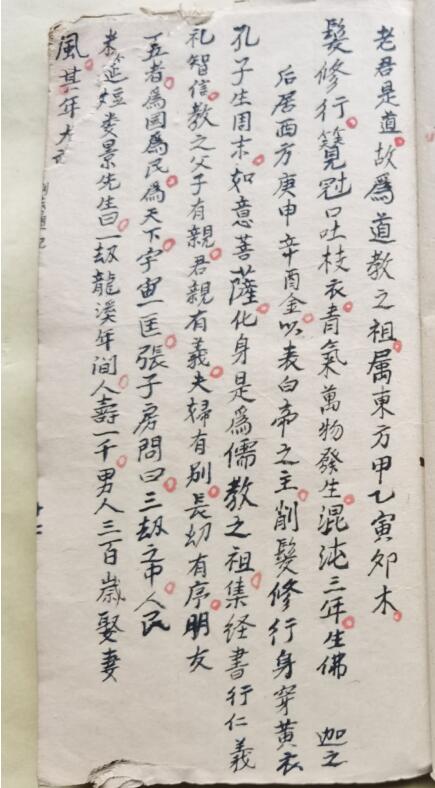 老君是道。故爲道教之祖。属東方甲乙寅卯木。
髮修行。簪冠口吐枝衣青氣萬物發生。混沌三年。生佛 迦之
后居西方庚申辛酉金。以表白帝之主。削髮修行身穿黄衣
孔子生周末。如意菩薩。化身是爲儒教之祖。集経書行仁義
礼智信。教之父子有親。君親有義。夫婦有别。長幼有序。朋友
五者。爲國爲民。爲天下宇宙一匡。張子房問曰。三劫之中。人民
短。娄景先生曰。一劫龍溪年间。人壽一千。男人三百歲娶妻
風。其年